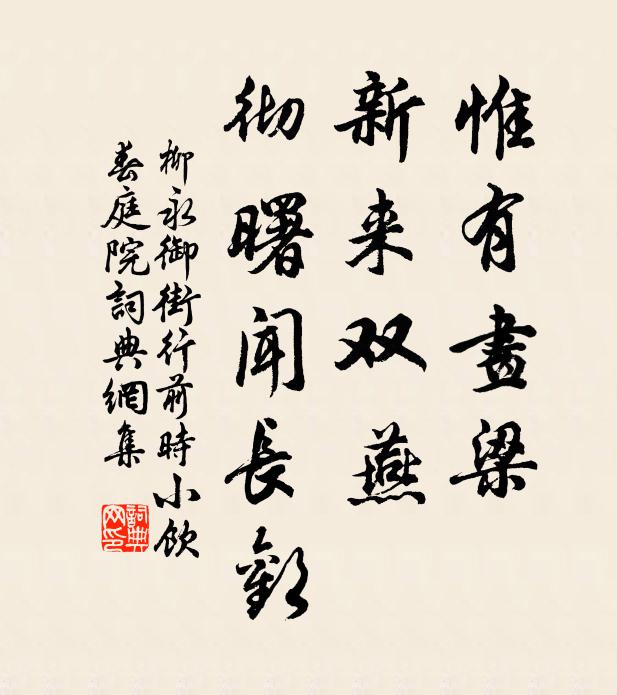 惟有畫梁
新来双燕
彻曙闻長歎
柳永御街行前時小飲
春庭院詞典網集
詞典
网印